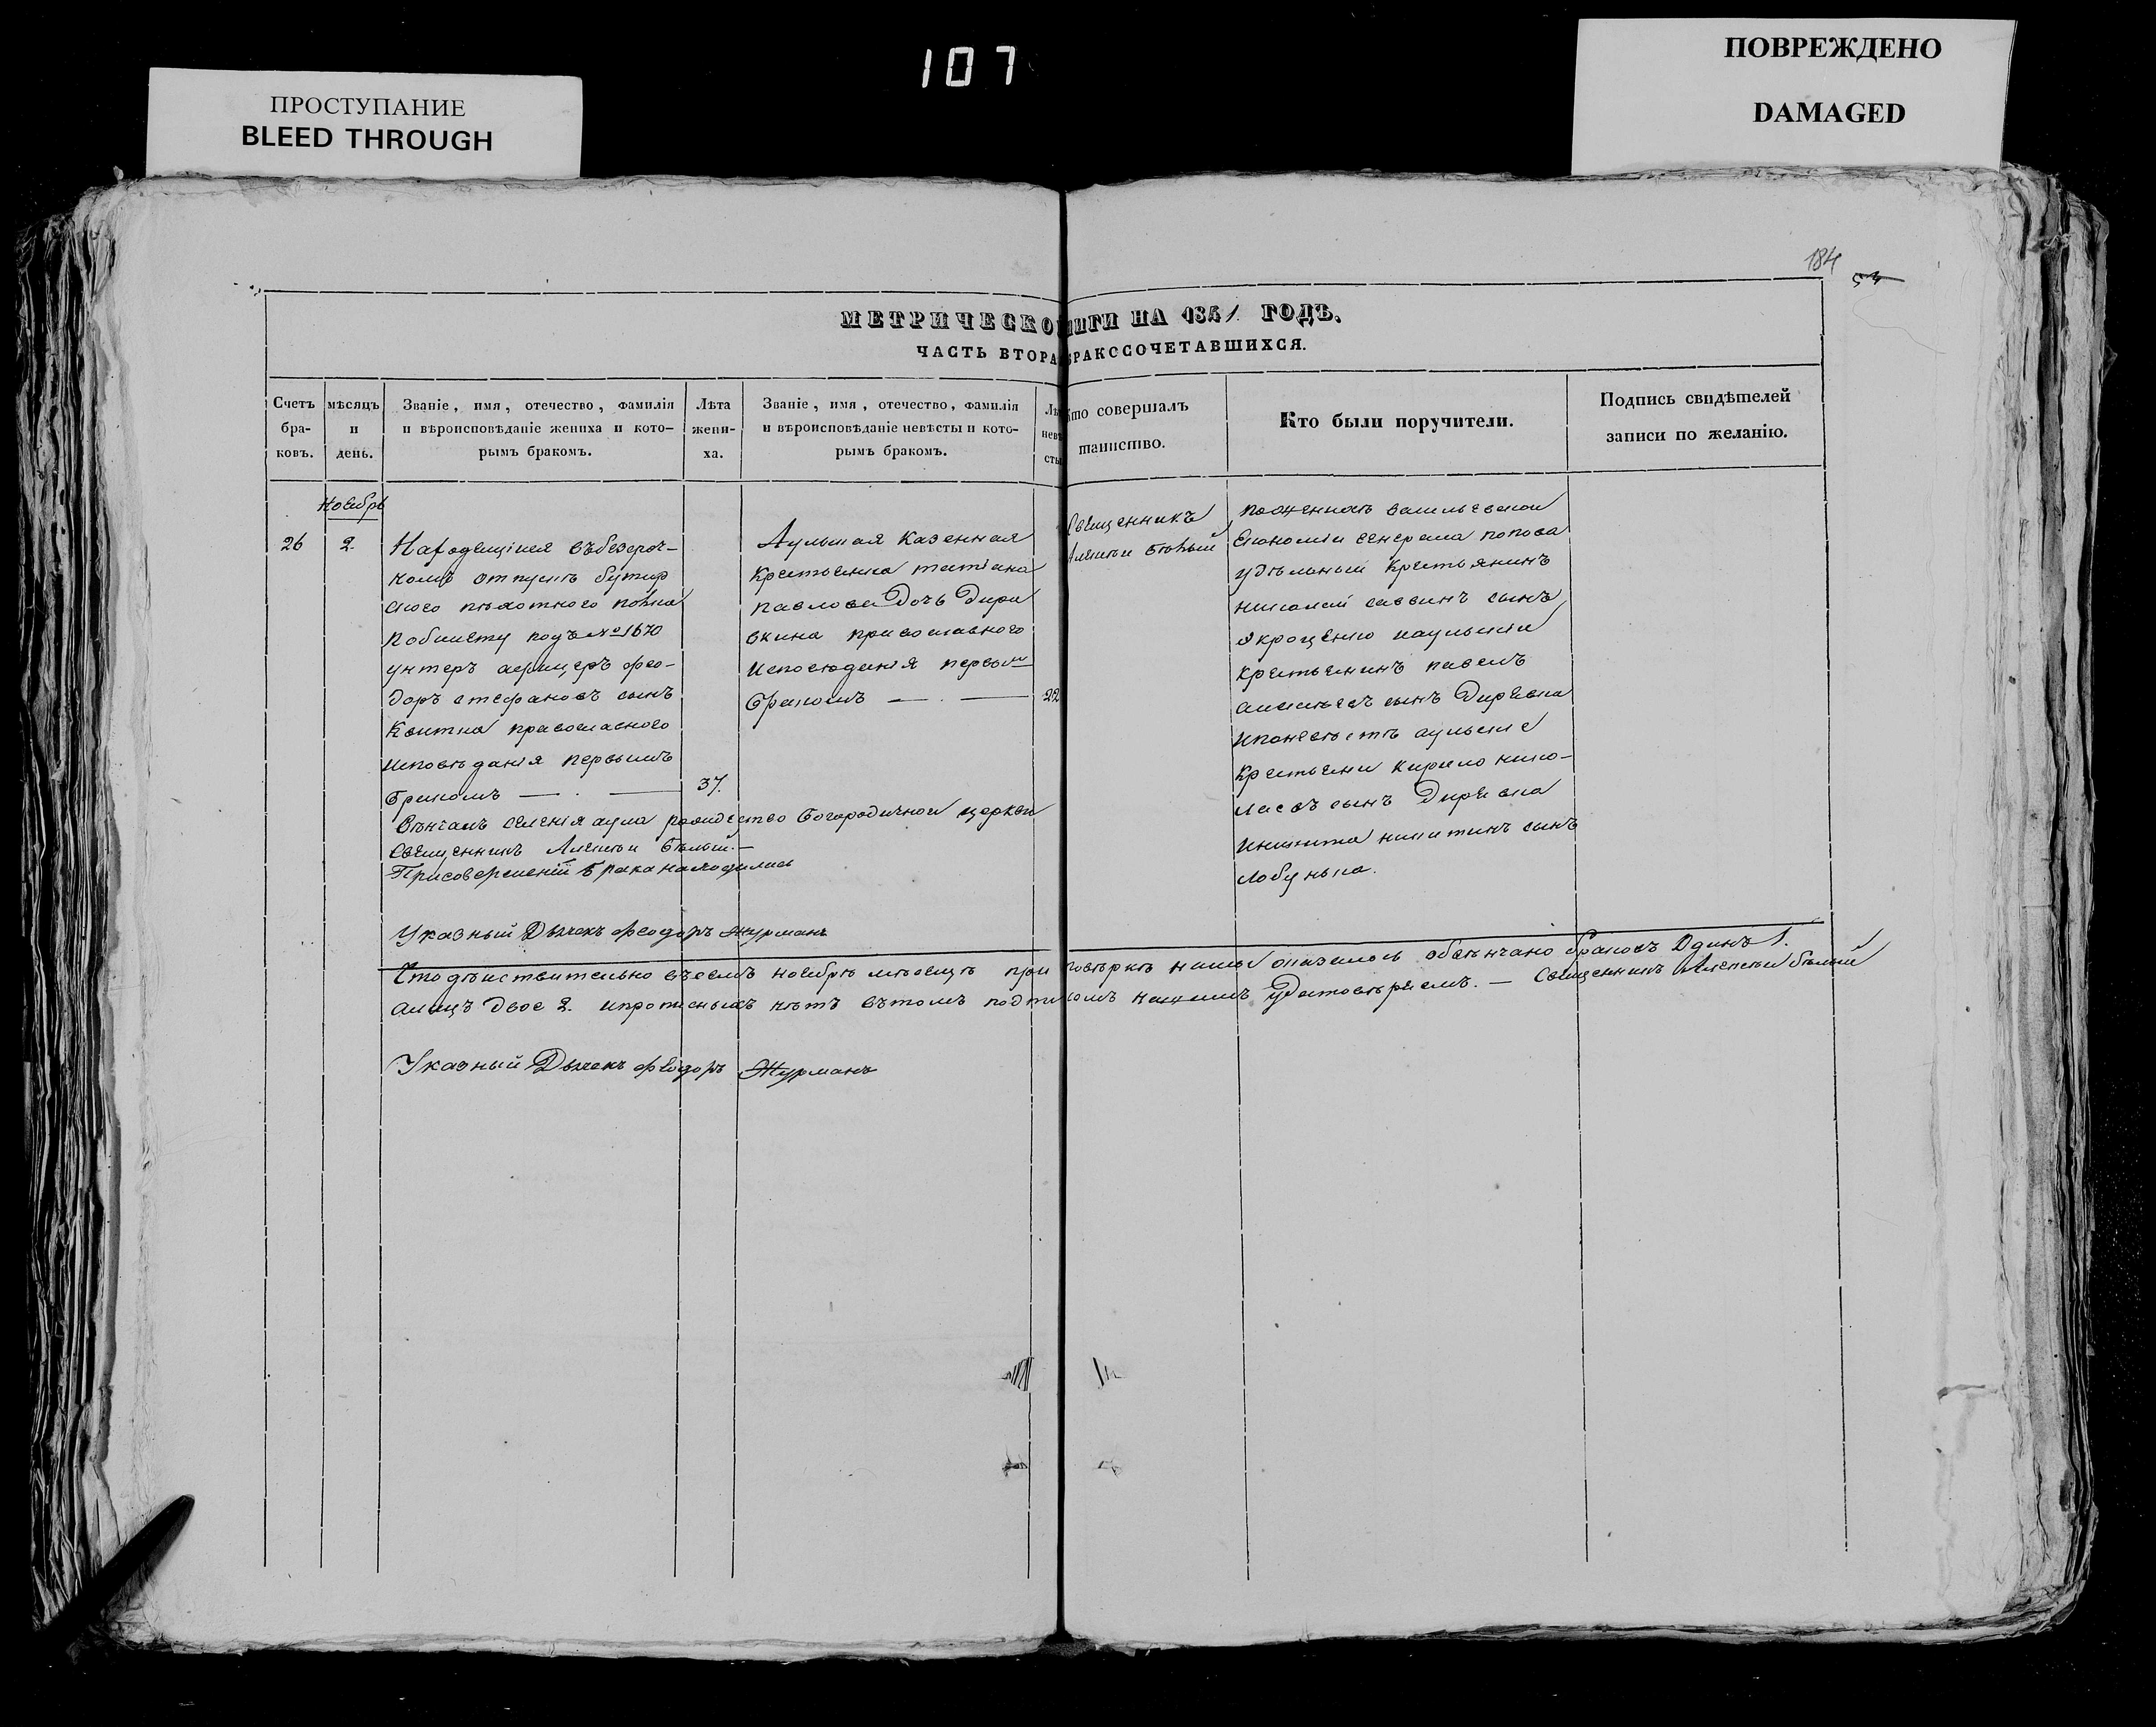 107
ПРОСТУПАНИЕ
BLEED THROUGH
ПОВРЕЖДЕНО
DAMAGED
184
МЕТРИЧЕСКО ИГИ НА 1851 ГОДЪ.
ЧАСТЬ ВТОРА БРАКОСОЧЕТАВШИХСЯ.
Счетъ бра- ковъ.
мѣсяцъ и день.
Званіе, имя, отечество, фамилія и вѣроисповѣданіе жениха и кото- рымъ бракомъ.
Лѣта жени- ха.
Званіе, имя, отечество, фамилія и вѣроисповѣданіе невѣсты и кото- рымъ бракомъ.
Лѣ невѣ сты
Кто совершалъ таинство.
Кто были поручители.
Подпись свидѣтелей записи по желанію.
Ноебрь
26
2.
Находящійся въ безсроч-
номъ отпускѣ бутыр
ского пѣхотного полка
по билету подъ № 1670
унтеръ афицеръ фео-
доръ стефановъ сынъ
православного
исповѣданія первымъ
бракомъ
37.
Аульская казенная
крестьянка татіана
павлова дочь Дири
вкина православного
исповѣданія первым
бракомъ
22
Священникъ
Алексѣи Бѣлый
Економіи генерала попова
удѣльный крестьянинъ
николай саввинъ сынъ
крестьянинъ павелъ
алексѣевъ сынъ
аульскіе
крестьяни кирило нико-
лаевъ сынъ
никита никитинъ сынъ
лобунька.
Вѣнчалъ селенія аула рождество Богородичной церкви
Священникъ Алексѣи Бѣлый.
При совершеніи брака находились
Указный Дьячекъ Феодоръ Журманъ
Что дѣиствительно въ семъ ноебрѣ мѣсецѣ при повѣркѣ нашей оказалось обвѣнчано браковъ Одинъ 1.
а лицъ двое 2. и прописныхъ нѣтъ въ томъ подписомъ нашимъ удостовѣряемъ. — Священникъ Алексѣи Бѣлый
Указный Дьячекъ Феодоръ Журманъ